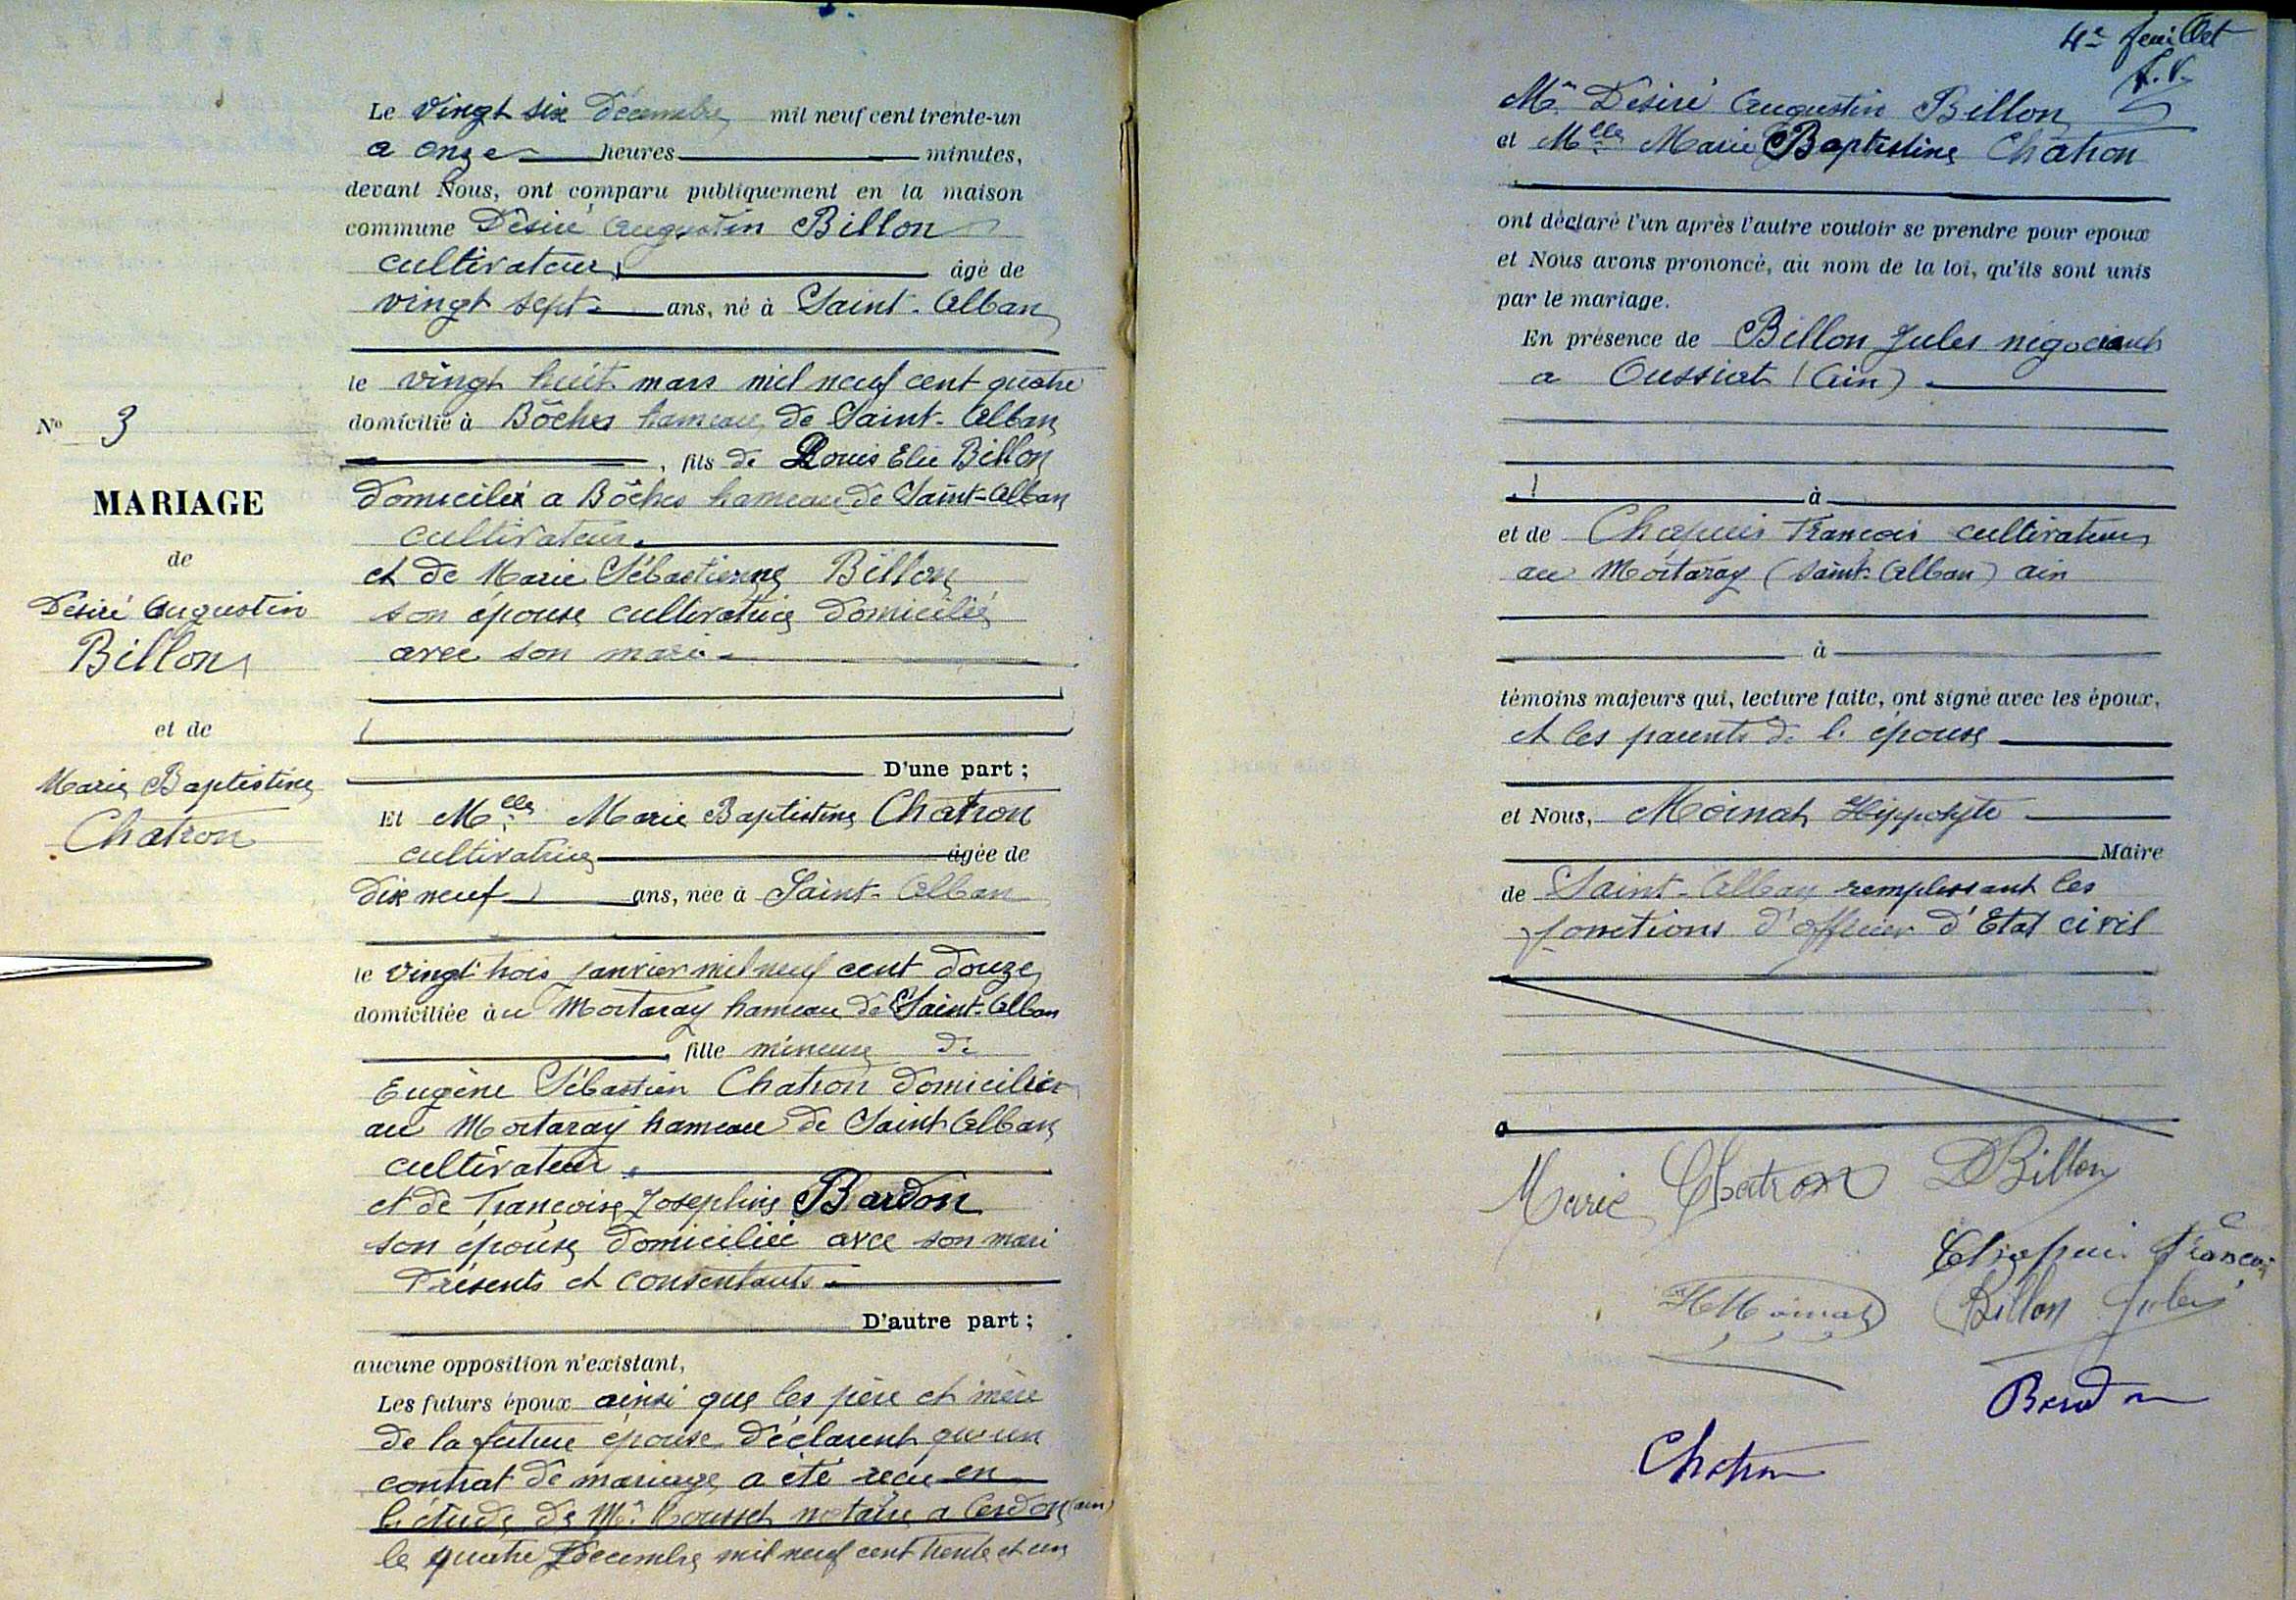 Le vingt six décembre mil neuf cent trente-un
a onze heures minutes,
devant Nous, ont comparu publiquement en la maison
commune Désiré Augustin Billon
cultivateur, âgé de
vingt sept ans, né à Saint-Alban
le vingt huit mars mil neuf cent quatre
domicilié à Bôches hameau de Saint-Alban
, fils de Louis Elie Billon
domicilié a Bôches hameau de Saint-Alban
cultivateur.
et de Marie Sébastienne Billon
son épouse cultivatrice domiciliée
avec son mari.
D'une part ;
Et Melle Marie Baptistine Chatron
cultivatrice âgée de
dix neuf ans, née à Saint-Alban
le vingt trois janvier mil neuf cent douze
domiciliée au Mortaray hameau de Saint-Alban
, fille mineure de
Eugène Sébastien Chatron domicilié
au Mortaray hameau de Saint Alban
cultivateur.
et de Françoise Josephine Bardon
son épouse domiciliée avec son mari
Présents et consentants.
D'autre part ;
aucune opposition n'existant,
Les futurs époux ainsi que les père et mère
de la future épouse déclarent qu'un
contrat de mariage a été reçu en
l'étude de Me Rousset notaire a Cerdon (ain)
le quatre décembre mil neuf cent trente et un
No 3
MARIAGE
de
Désiré Augustin
Billon
et de
Marie Baptistine
Chatron
4e feuillet
Mr Désiré Augustin Billon
et Melle Marie Baptistine Chatron
ont déclaré l'un après l'autre vouloir se prendre pour epoux
et Nous avons prononcé, au nom de la loi, qu'ils sont unis
par le mariage.
En présence de Billon Jules négociant
a Oussiat (Ain).
à
et de Chapuis François cultivateur
au Mortaray (Saint-Alban) ain
à
témoins majeurs qui, lecture faite, ont signé avec les époux,
et les parents de l'épouse
et Nous, Moinat Hippolyte
Maire
de Saint-Alban remplissant les
fonctions d'officier d'Etat civil
Marie Chatron D Billon
Chapuis François
H Moinat Billon Jules
Bardon
Chatron